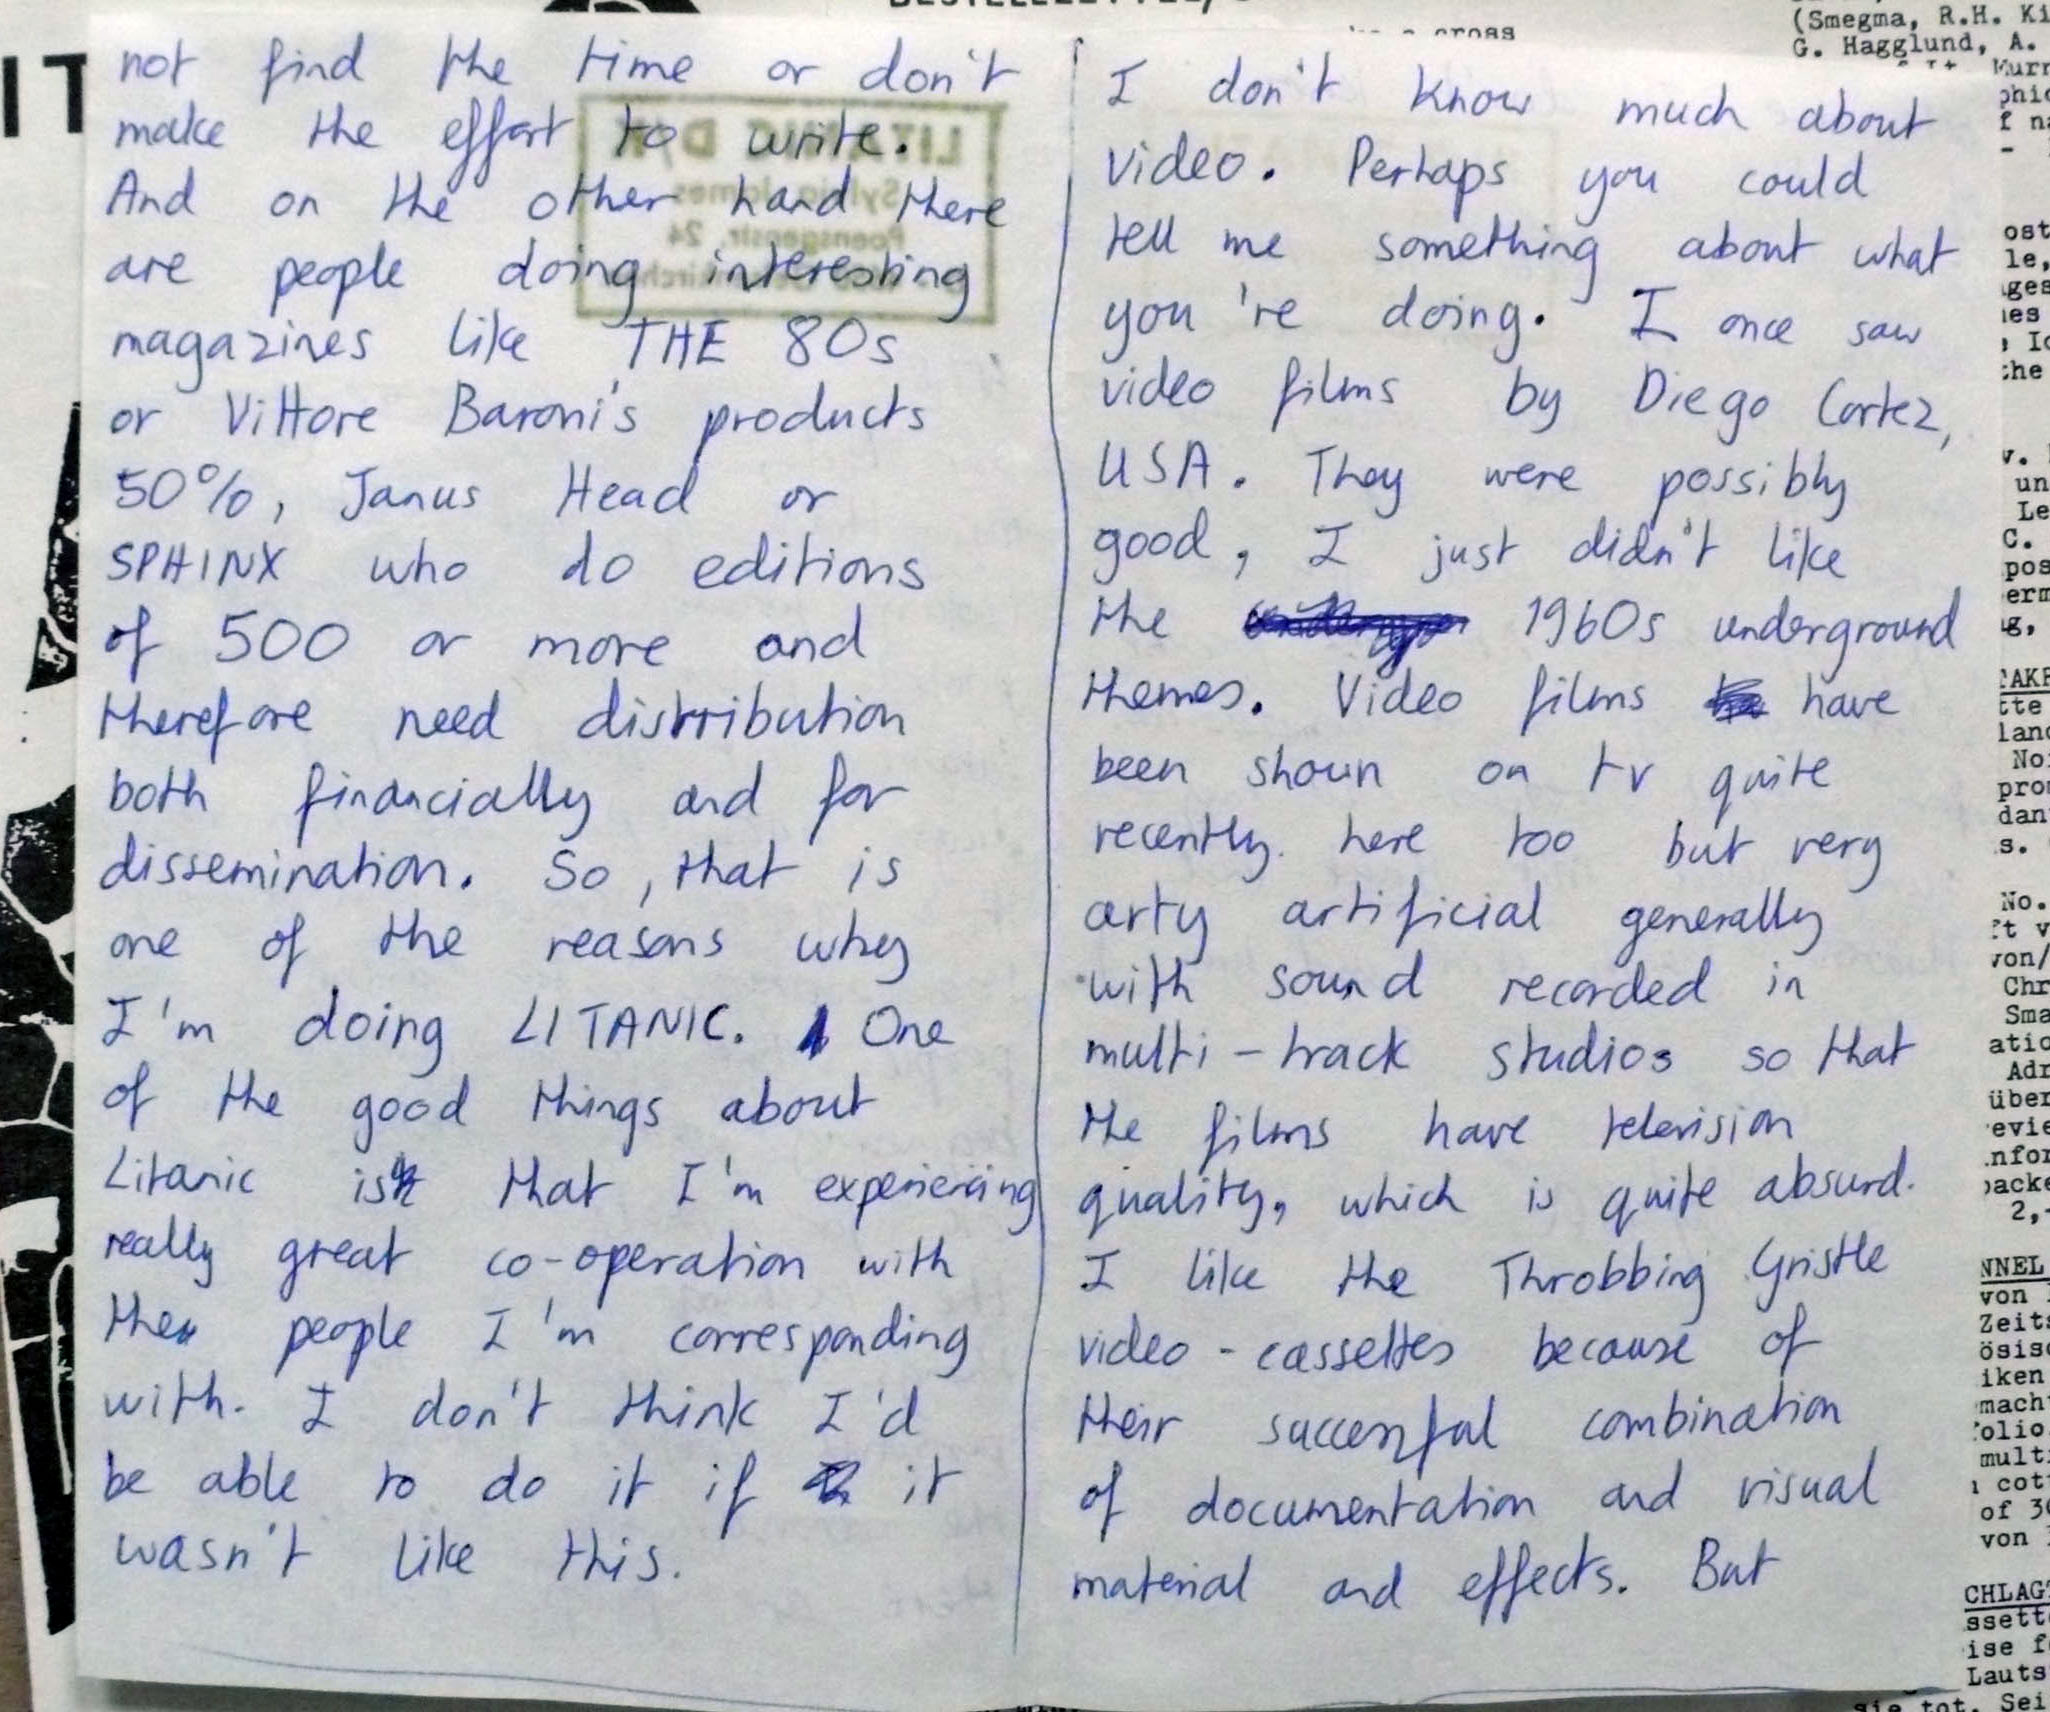 not find the time or don't
make the effort to write.
And on the other hand there
are people doing interesting
magazines like THE 80s
or Vittore Baroni's products
50%, Janus Head or
SPHINX who do editions
of 500 or more and
therefore need distribution
both financially and for
dissemination. So, that is
one of the reasons why
I'm doing LITANIC. One
of the good things about
Litanic is that I'm experiencing
really great co-operation with
the people I'm corresponding
with. I don't think I'd
be able to do it if it
wasn't like this.
I don't know much about
video. Perhaps you could
tell me something about what
you're doing. I once saw
video films by Diego Cortez,
USA. They were possibly
good, I just didn't like
the 1960s underground
themes. Video films have
been shown on tv quite
recently here too but very
arty artificial generally
with sound recorded in
multi-track studios so that
the films have television
quality, which is quite absurd.
I like the Throbbing Gristle
video-cassettes because of
their successful combination
of documentation and visual
material and effects. But
IT
(Smegma, R.H. Ki
G. Hagglund, A.
Murr
ost
le,
the
v.
un
Le
C.
pos
erm
land
pro
dan
s.
No.
von/
Chr
Sma
atio
Adr
über
evie
nfor
packe
2,-
NNEL
von
Zeits
ösisc
iken
macht
olio.
multi
cott
of 30
von
CHLAGT
ssette
ise f
Lauts
sie tot. Sei